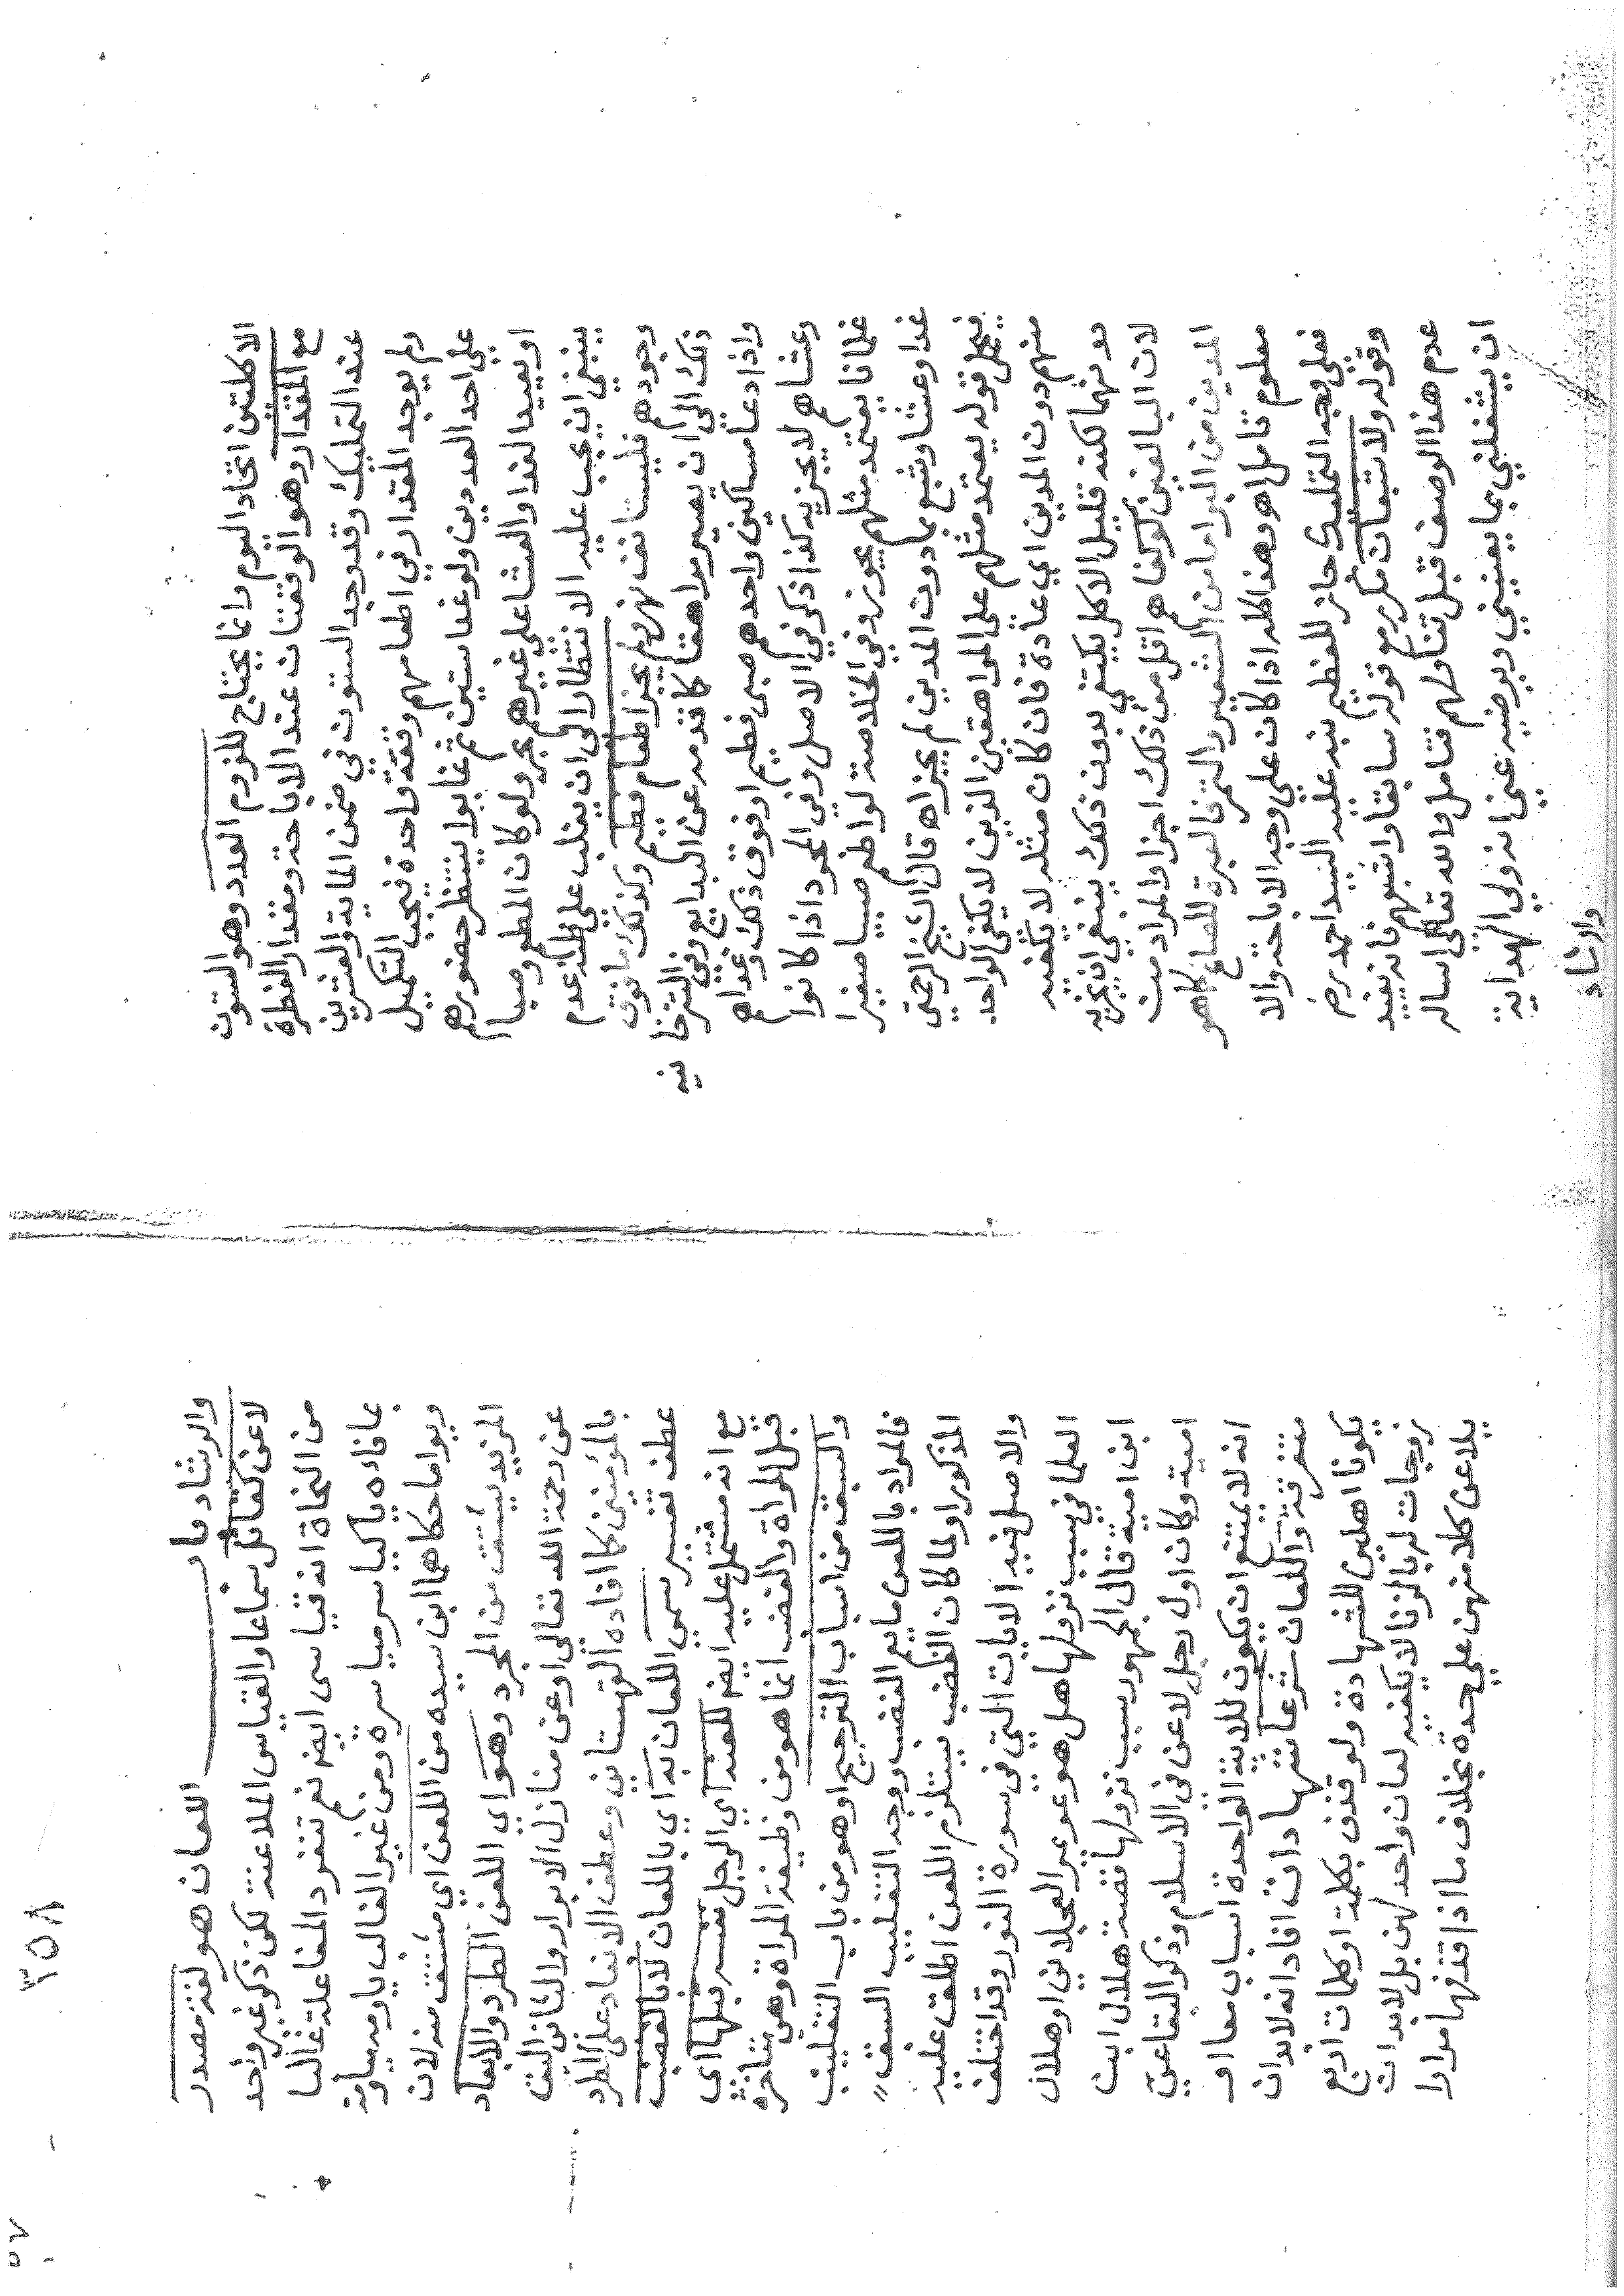 الاكلتين اتحاد اليوم وانما يحتاج للزوم العدد وهو الستون
مع المقدار وهو الوقفتان عند الاباحة ومقدار الفطرة
عند التمليك وقد وجد الستون في ضمن الماية والعشرين
ولم يوجد المقدار في اطعامهم وقفة واحدة فيجب التكميل
على احد العددين ولو غدا ستين ثم غابوا ينتظر حضورهم
او يعيد الغدا والعشا على غيرهم بحر ولو كان المطعم وصيا
ينبغي ان يجب عليه الانتظار الى ان يغلب على ظنه عدم
وجودهم فليستانف نهر ولم يجز اطعام فطيم وكذلك ما فوق
ذلك الى ان يصير مراهقا كما قدمه عن البدايع وفي التترخانيه
واذا دعا مساكين واحدهم صبي فطيم او فوق ذلك وغداهم
وعشاهم لا يجزيه كذا ذكر في الاصل وفي المجرد اذا كانوا
غلمانا يعتمد مثلهم يجوز وفي الخلاصة لو اطعم صبيا صغيرا
غدا وعشا وشبع بما دون المدين لم يجزاه قال الشيخ الرحمتي
فيحمل قوله يعتمد مثلهم على المراهقين الذين لا يكتفي الواحد
منهم دون المدين اي عادة فان كان مثله لا تكفيه
دونهما لكنه قليل الاكل يكتفي بدون ذلك ينبغي ان يجزيه
لان البالغين لو كفاهم اقل من ذلك اجزا والمراد من
المدين من البر اما من الشعير والتمر فالعبرة للصاع كما هو
معلوم تامل اهـ وهذا اذا كان على وجه الاباحة والا
فعلى وجه التمليك جائز للفطيم نبه عليه السيد احمد رمز
وقوله ولا شبعان مكرر مع قوله سابقا واشبعهم فانه يفيد
عدم هذا الوصف قبل تناولهم فتامل والله تعالى اساله
ان يشغلني بما يعنيني ويرضيه عني انه ولي الهداية
والرشاد
٣٥٨
والرشاد باب اللعان هو لغة مصدر
لاعن كقاتل سماعا والقياس الملاعنة لكن ذكر غير واحد
من النحاة انه قياسي ايضا نعم تنفرد المفاعلة غالبا
بما فاءه ياء كياسر مياسرة ومن غير الغالب ياومه مياومة
ويواما حكاهما ابن سيده من اللعن اي مشتق منه لان
المزيد يشتق من المجرد وهو اي اللعن الطرد والابعاد
عن رحمة الله تعالى او عن منازل الابرار والثاني اليق
بالمؤمنين كما افاده القهستاني وعطف الابعاد على الطرد
عطف تفسير سمي اللعان به اي باللعان لا بالغضب
مع انه مشتمل عليه ايضا للعنه اي الرجل نفسه قبلها اي
قبل المراة والغضب انما هو من وظيفة المراة وهي متاخرة
والسبق من اسباب الترجيح او هو من باب التغليب
فالمراد باللعن ما يعم الغضب ووجه التغليب السبق
المذكور او لما كان الغضب يستلزم اللعن اطلق عليه
والاصل فيه الايات التي في سورة النور وقد اختلف
العلما في سبب نزولها هل هو عويمر العجلاني او هلال
ابن امية قال الجمهور سبب نزولها قصة هلال ابن
امية وكان اول رجل لاعن في الاسلام وذكر البقاعي
انه لا يمتنع ان يكون للاية الواحدة اسباب معا او
متفرقة واللعان شرعا شهادات افاد انه لابد ان
يكونا اهلين للشهادة ولو قذف بكلمة او كلمات اربع
زوجات له بالزنا لا يكفيه لعان واحد لهن بل لابد ان
يلاعن كلا منهن على حدة بخلاف ما اذا قذفها مرارا